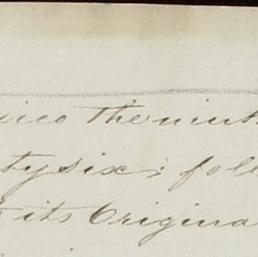 the nint
ty six; foll
its Origina